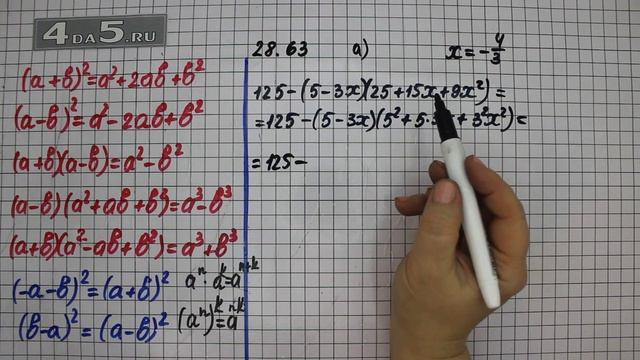 4ДА5.RU
(a+b)²=a²+2ab+b²
(a-b)²=a²-2ab+b²
(a+b)(a-b)=a²-b²
(a-b)(a²+ab+b²)=a³-b³
(a+b)(a²-ab+b²)=a³+b³
(-a-b)²=(a+b)²
(b-a)²=(a-b)²
aⁿ·aᵏ=aⁿ⁺ᵏ
(aⁿ)ᵏ=aⁿᵏ
28.63 a) x=-4/3
125-(5-3x)(25+15x+9x²)=
=125-(5-3x)(5²+5·3x+3²x²)=
=125-